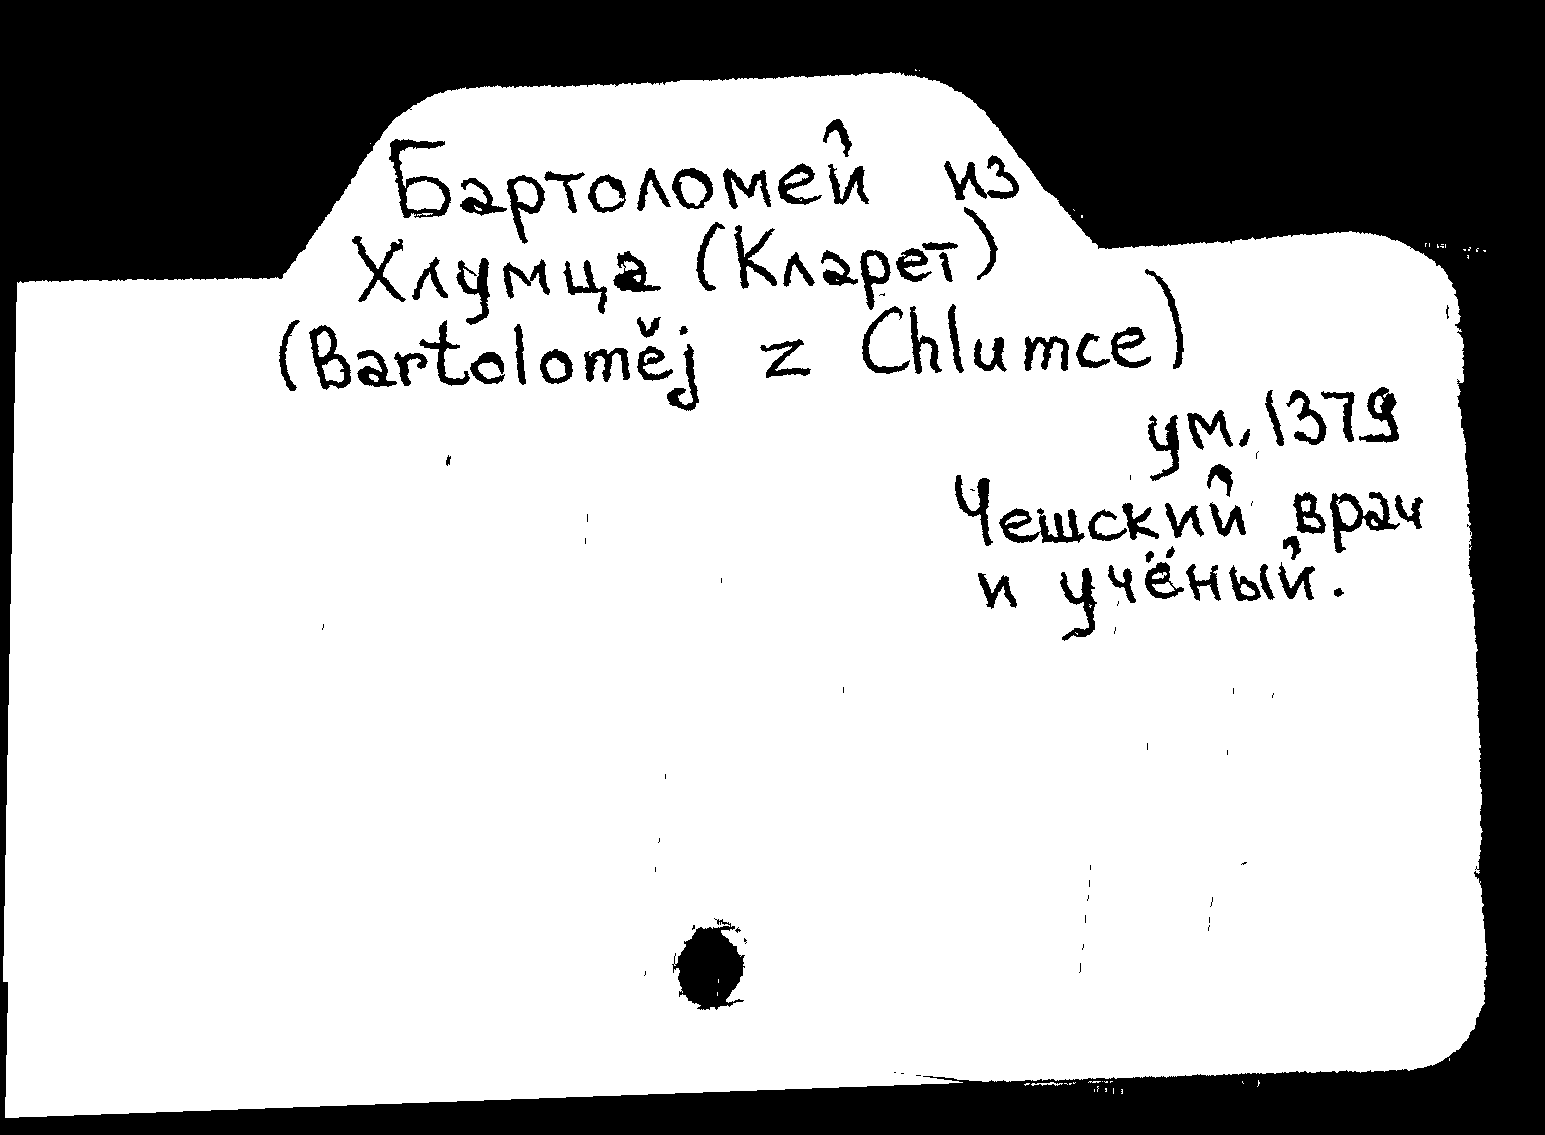 Бартоломей из
Хлумца (Кларет)
(Bartoloměj z Chlumce)
ум. 1379
Чешский врач
и учёный.